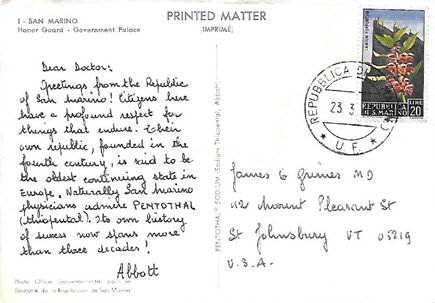 I - SAN MARINO
Honor Guard - Government Palace
PRINTED MATTER
(IMPRIMÉ)
Dear Doctor:
Greetings from the Republic
of San Marino! Citizens here
have a profound respect for
things that endure. Their
own republic, founded in the
fourth century, is said to be
the oldest continuing state in
Europe. Naturally San Marino
physicians admire PENTOTHAL
(thiopental). Its own history
of success now spans more
than three decades!
Abbott
Photo Office Gouvernemental pour le
Tourisme de la République de San Marino
PENTOTHAL® SODIUM (Sodium Thiopental, Abbott)
REPUBBLICA
LIRE
REPUBBLICA
20
DI S. MARINO
REPUBBLICA DI
23 3
* U.F. *
James G Grimes MD
42 Mount Pleasant St
St Johnsbury VT 05819
U.S.A.